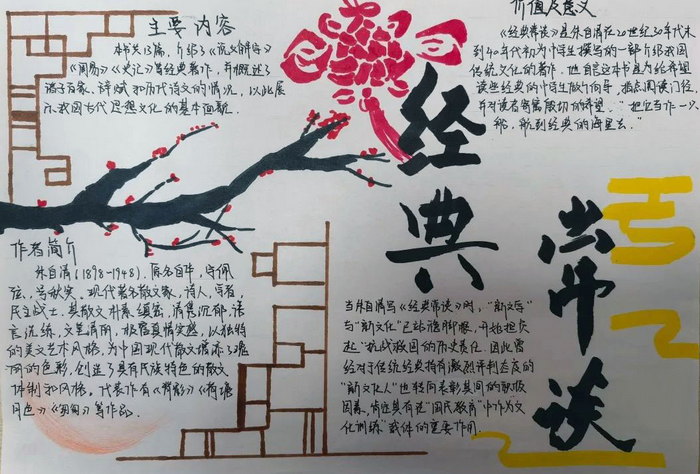 主要内容
本书共13篇，介绍了《说文解字》
《周易》《史记》等经典著作，并概述了
诸子百家、辞赋和历代诗文的情况，以此展
示我国古代思想文化的基本面貌
价值及意义
《经典常谈》是朱自清在20世纪30年代末
到40年代初为中学生撰写的一部介绍我国
传统文化的著作。他自己这本书是为给希望
读些经典的中学生做个向导，指点阅读门径，
并对读者寄寓殷切的希望。"把它当作一只
船，航到经典的海里去。"
经典
常谈
作者简介
朱自清(1898-1948)，原名自华，字佩
弦，号秋实。现代著名散文家，诗人，学者，
民主战士。其散文朴素缜密，清隽沉郁，语
言洗练，文笔清丽，极富真情实感，以独特
的美文艺术风格，为中国现代散文增添了瑰
丽的色彩，创造了具有民族特色的散文
体制和风格。代表作有《背影》《荷塘
月色》《匆匆》等作品。
当朱自清写《经典常谈》时，"新文学"
与"新文化"已站稳脚跟，开始担负
起"抗战救国的历史责任。因此曾
经对于传统经典持有激烈评判态度的
"新文化人"也转向表彰其间的积极
因素，肯定其有这"国民教育"中作为文
化训练"载体的重要作用